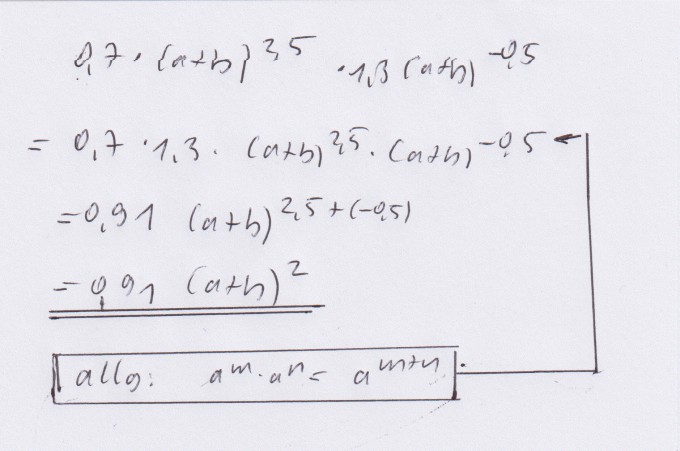 0,7 · (a+b)^2,5 · 1,3 (a+b)^-0,5
= 0,7 · 1,3 · (a+b)^2,5 · (a+b)^-0,5
= 0,91 (a+b)^2,5+(-0,5)
= 0,91 (a+b)^2
allg: a^m · a^n = a^m+n